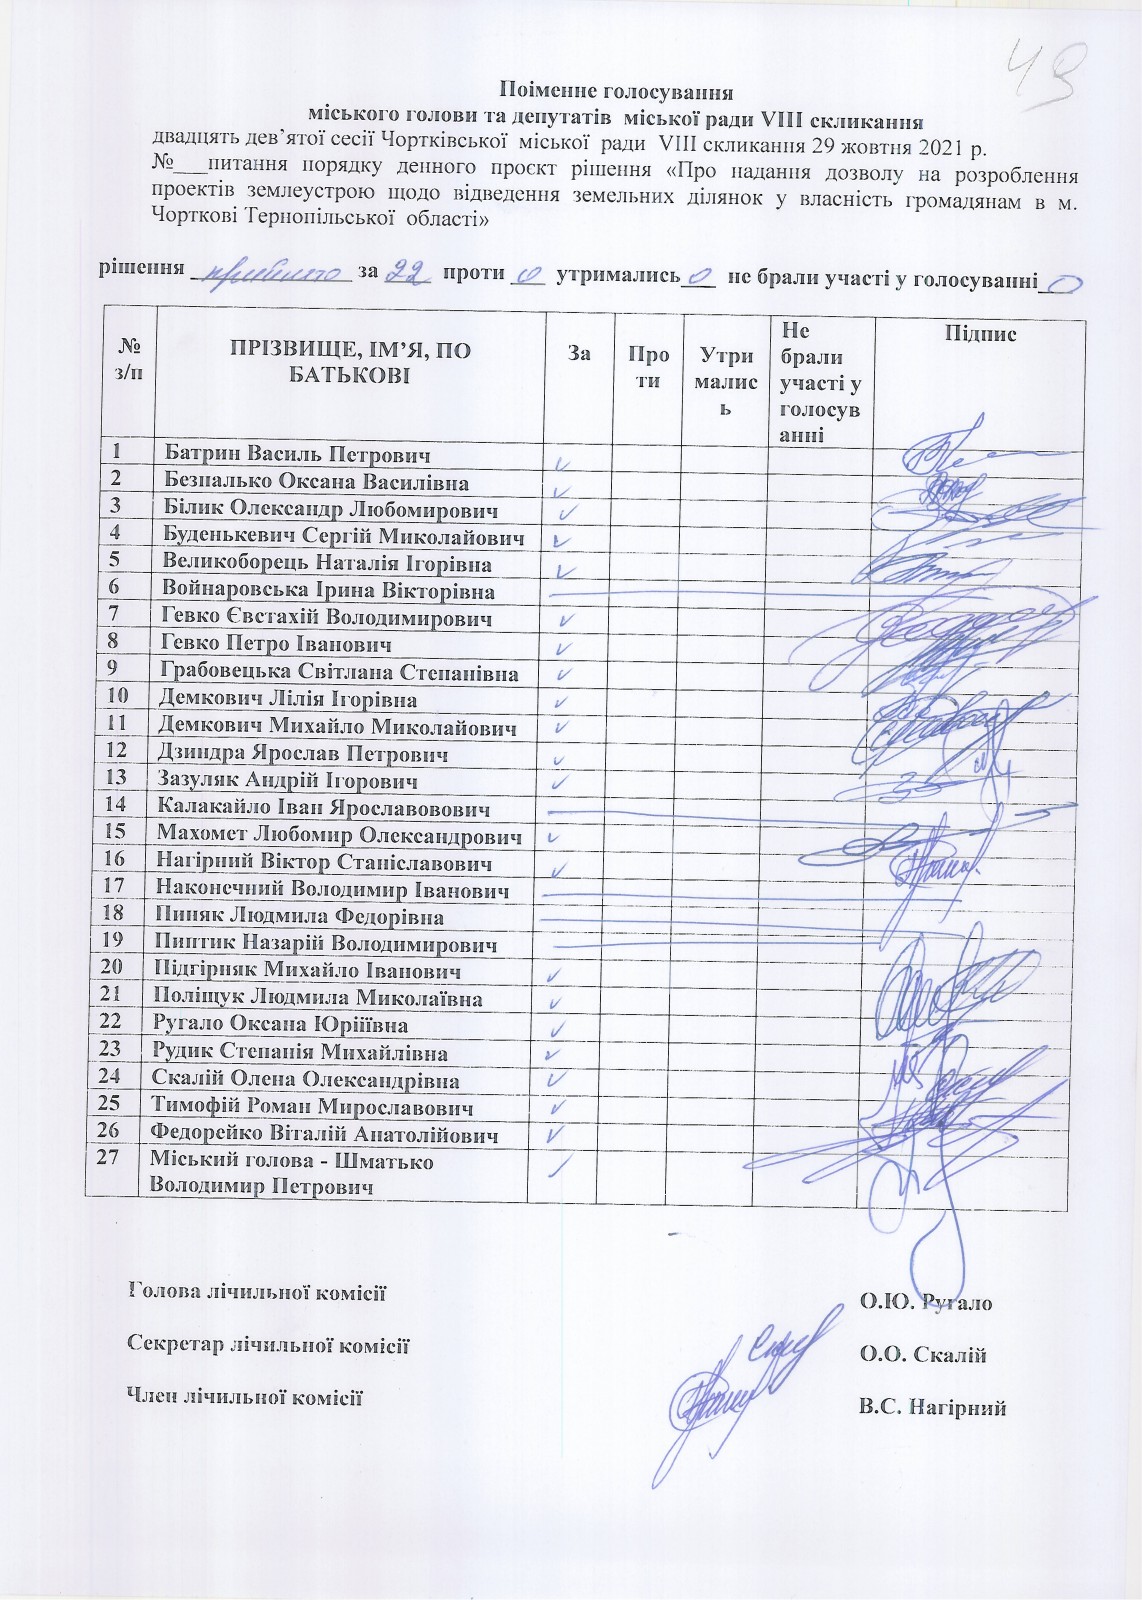 43
Поіменне голосування
міського голови та депутатів міської ради VIII скликання
двадцять дев’ятої сесії Чортківської міської ради VIII скликання 29 жовтня 2021 р.
№___питання порядку денного проєкт рішення «Про надання дозволу на розроблення
проектів землеустрою щодо відведення земельних ділянок у власність громадянам в м.
Чорткові Тернопільської області»
рішення прийнято за 22 проти 0 утримались 0 не брали участі у голосуванні 0
№ з/п ПРІЗВИЩЕ, ІМ’Я, ПО БАТЬКОВІ За Про ти Утри малис ь Не брали участі у голосув анні Підпис
1 Батрин Василь Петрович
2 Безпалько Оксана Василівна
3 Білик Олександр Любомирович
4 Буденькевич Сергій Миколайович
5 Великоборець Наталія Ігорівна
6 Войнаровська Ірина Вікторівна
7 Гевко Євстахій Володимирович
8 Гевко Петро Іванович
9 Грабовецька Світлана Степанівна
10 Демкович Лілія Ігорівна
11 Демкович Михайло Миколайович
12 Дзиндра Ярослав Петрович
13 Зазуляк Андрій Ігорович
14 Калакайло Іван Ярославовович
15 Махомет Любомир Олександрович
16 Нагірний Віктор Станіславович
17 Наконечний Володимир Іванович
18 Пиняк Людмила Федорівна
19 Пиптик Назарій Володимирович
20 Підгірняк Михайло Іванович
21 Поліщук Людмила Миколаївна
22 Ругало Оксана Юріїівна
23 Рудик Степанія Михайлівна
24 Скалій Олена Олександрівна
25 Тимофій Роман Мирославович
26 Федорейко Віталій Анатолійович
27 Міський голова - Шматько
Володимир Петрович
Голова лічильної комісії О.Ю. Ругало
Секретар лічильної комісії О.О. Скалій
Член лічильної комісії В.С. Нагірний